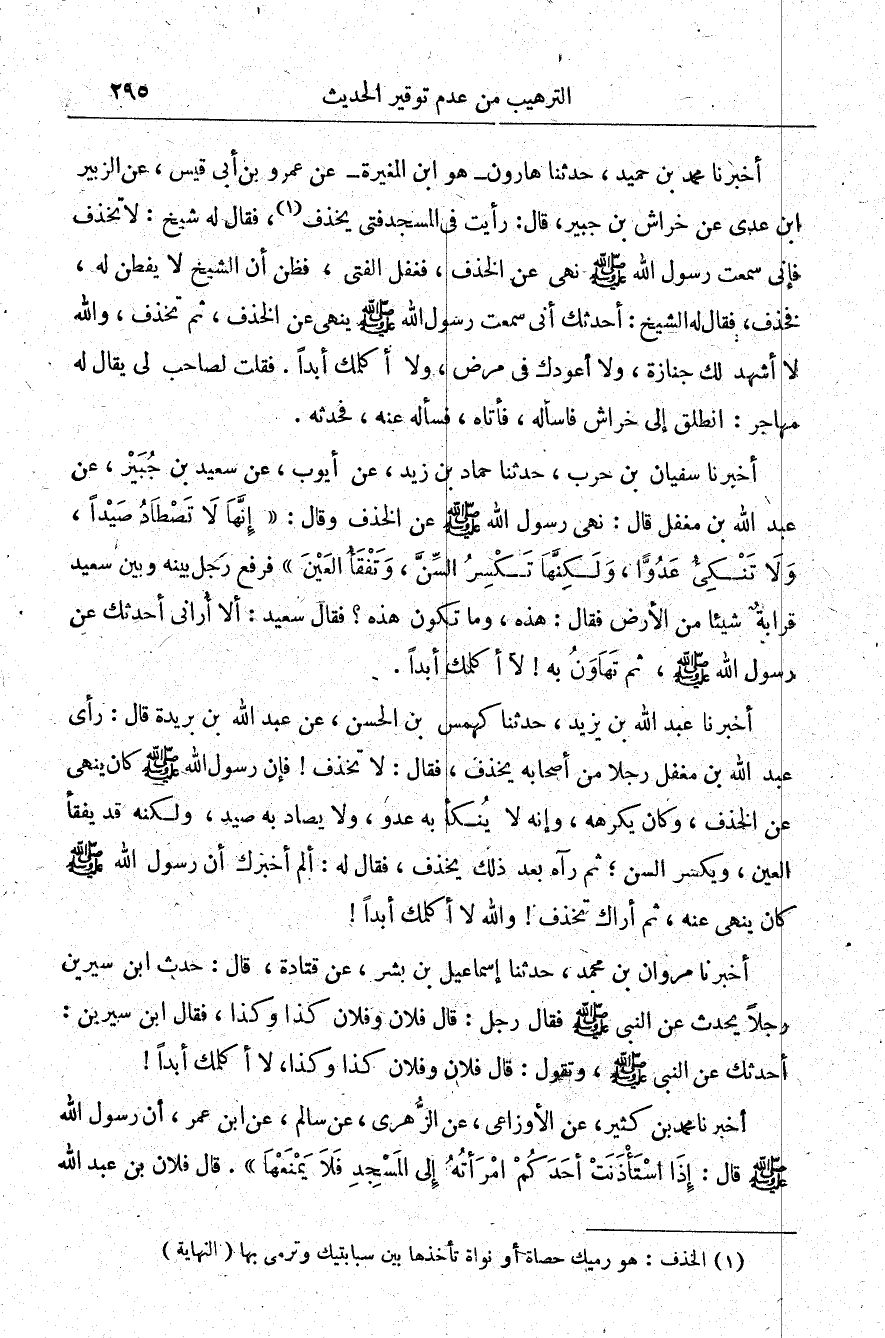 الترهيب من عدم توقير الحديث ٢٩٥
أخبرنا محمد بن حميد ، حدثنا هارون ــ هو ابن المغيرة ــ عن عمرو بن أبى قيس ، عن الزبير
ابن عدى عن خراش بن جبير، قال: رأيت فى المسجد فتى يخذف(١)، فقال له شيخ : لا تخذف
فإنى سمعت رسول الله ﷺ نهى عن الخذف ، فغفل الفتى ، فظن أن الشيخ لا يفطن له ،
فخذف، فقال له الشيخ : أحدثك أنى سمعت رسول الله ﷺ ينهى عن الخذف ، ثم تخذف ، والله
لا أشهد لك جنازة ، ولا أعودك فى مرض ، ولا أكلمك أبداً . فقلت لصاحب لى يقال له
مهاجر : انطلق إلى خراش فاسأله ، فأتاه ، فسأله عنه ، فحدثه .
أخبرنا سفيان بن حرب ، حدثنا حماد بن زيد ، عن أيوب ، عن سعيد بن جُبَيْر ، عن
عبد الله بن مغفل قال : نهى رسول الله ﷺ عن الخذف وقال : « إِنَّهَا لَا تَصْطَادُ صَيْداً ،
وَلَا تَنْـكِئُ عَدُوًّا ، وَلَـكِنَّهَا تَـكْسِرُ السِّنَّ ، وَتَفْقَأُ العَيْنَ » فرفع رجل بينه وبين سعيد
قرابة شيئا من الأرض فقال : هذه ، وما تكون هذه ؟ فقال سعيد : ألا أُرانى أحدثك عن
رسول الله ﷺ ، ثم تَهَاوَنُ به ! لا أكلمك أبداً .
أخبرنا عبد الله بن يزيد ، حدثنا كهمس بن الحسن ، عن عبد الله بن بريدة قال : رأى
عبد الله بن مغفل رجلا من أصحابه يخذف ، فقال : لا تخذف ! فإن رسول الله ﷺ كان ينهى
عن الخذف ، وكان يكرهه ، وإنه لا يُنـكأ به عدو ، ولا يصاد به صيد ، ولـكنه قد يفقأ
العين ، ويكسر السن ؛ ثم رآه بعد ذلك يخذف ، فقال له : ألم أخبرك أن رسول الله ﷺ
كان ينهى عنه ، ثم أراك تخذف ! والله لا أكلمك أبداً !
أخبرنا مروان بن محمد ، حدثنا إسماعيل بن بشر ، عن قتادة ، قال : حدث ابن سيرين
رجلاً يحدث عن النبى ﷺ فقال رجل : قال فلان وفلان كذا وكذا ، فقال ابن سيرين :
أحدثك عن النبى ﷺ ، وتقول : قال فلان وفلان كذا وكذا، لا أكلمك أبداً !
أخبرنا محمد بن كثير، عن الأوزاعى، عن الزُّهرى، عن سالم ، عن ابن عمر ، أن رسول الله
ﷺ قال : إِذَا اسْتَأْذَنَتْ أَحَدَكُمْ امْرَأَتُهُ إِلى المَسْجِدِ فَلَا يَمْنَعْهَا » . قال فلان بن عبد الله
(١) الخذف : هو رميك حصاة أو نواة تأخذها بين سبابتيك وترمى بها ( النهاية )